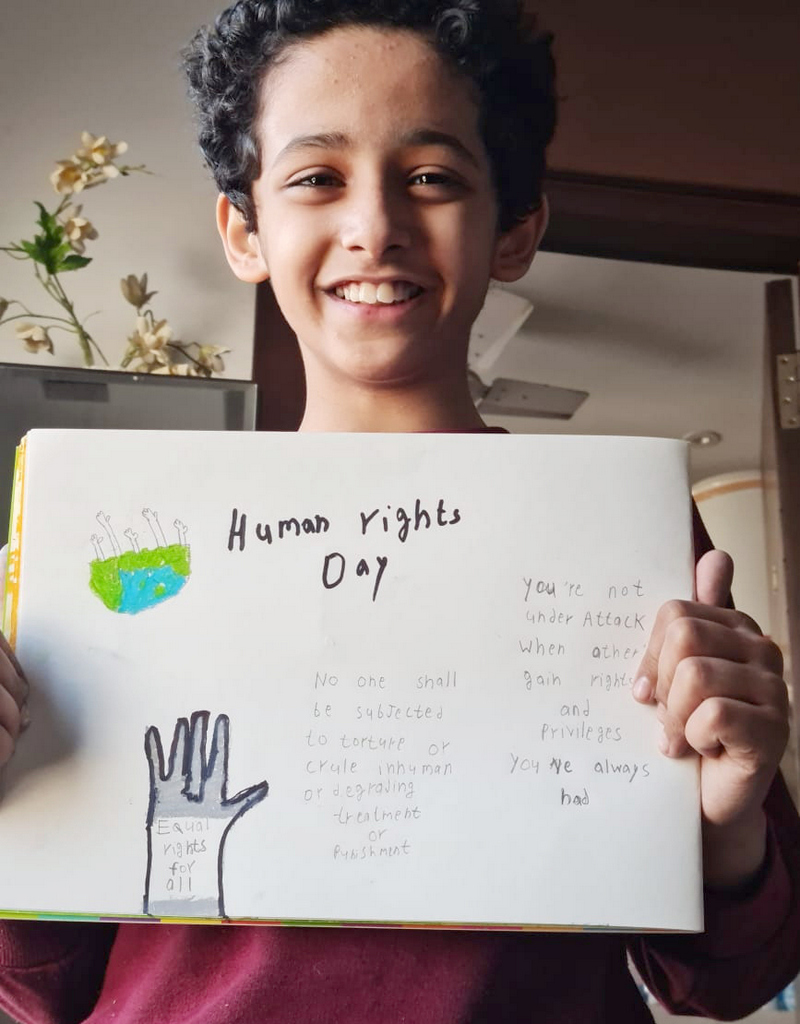 Human rights
Day
You're not
under Attack
when other
gain rights
and
Privileges
You've always
had
No one shall
be subjected
to torture or
crule inhuman
or degrading
treatment
or
Punishment
Equal
rights
for
all